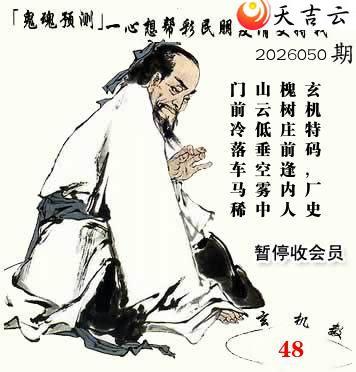 天吉云
「鬼魂预测」一心想帮彩民朋
2026050 期
玄机特码,厂史
槐树庄前逢内人
山云低垂空雾中
门前冷落车马稀
暂停收会员
玄机
48